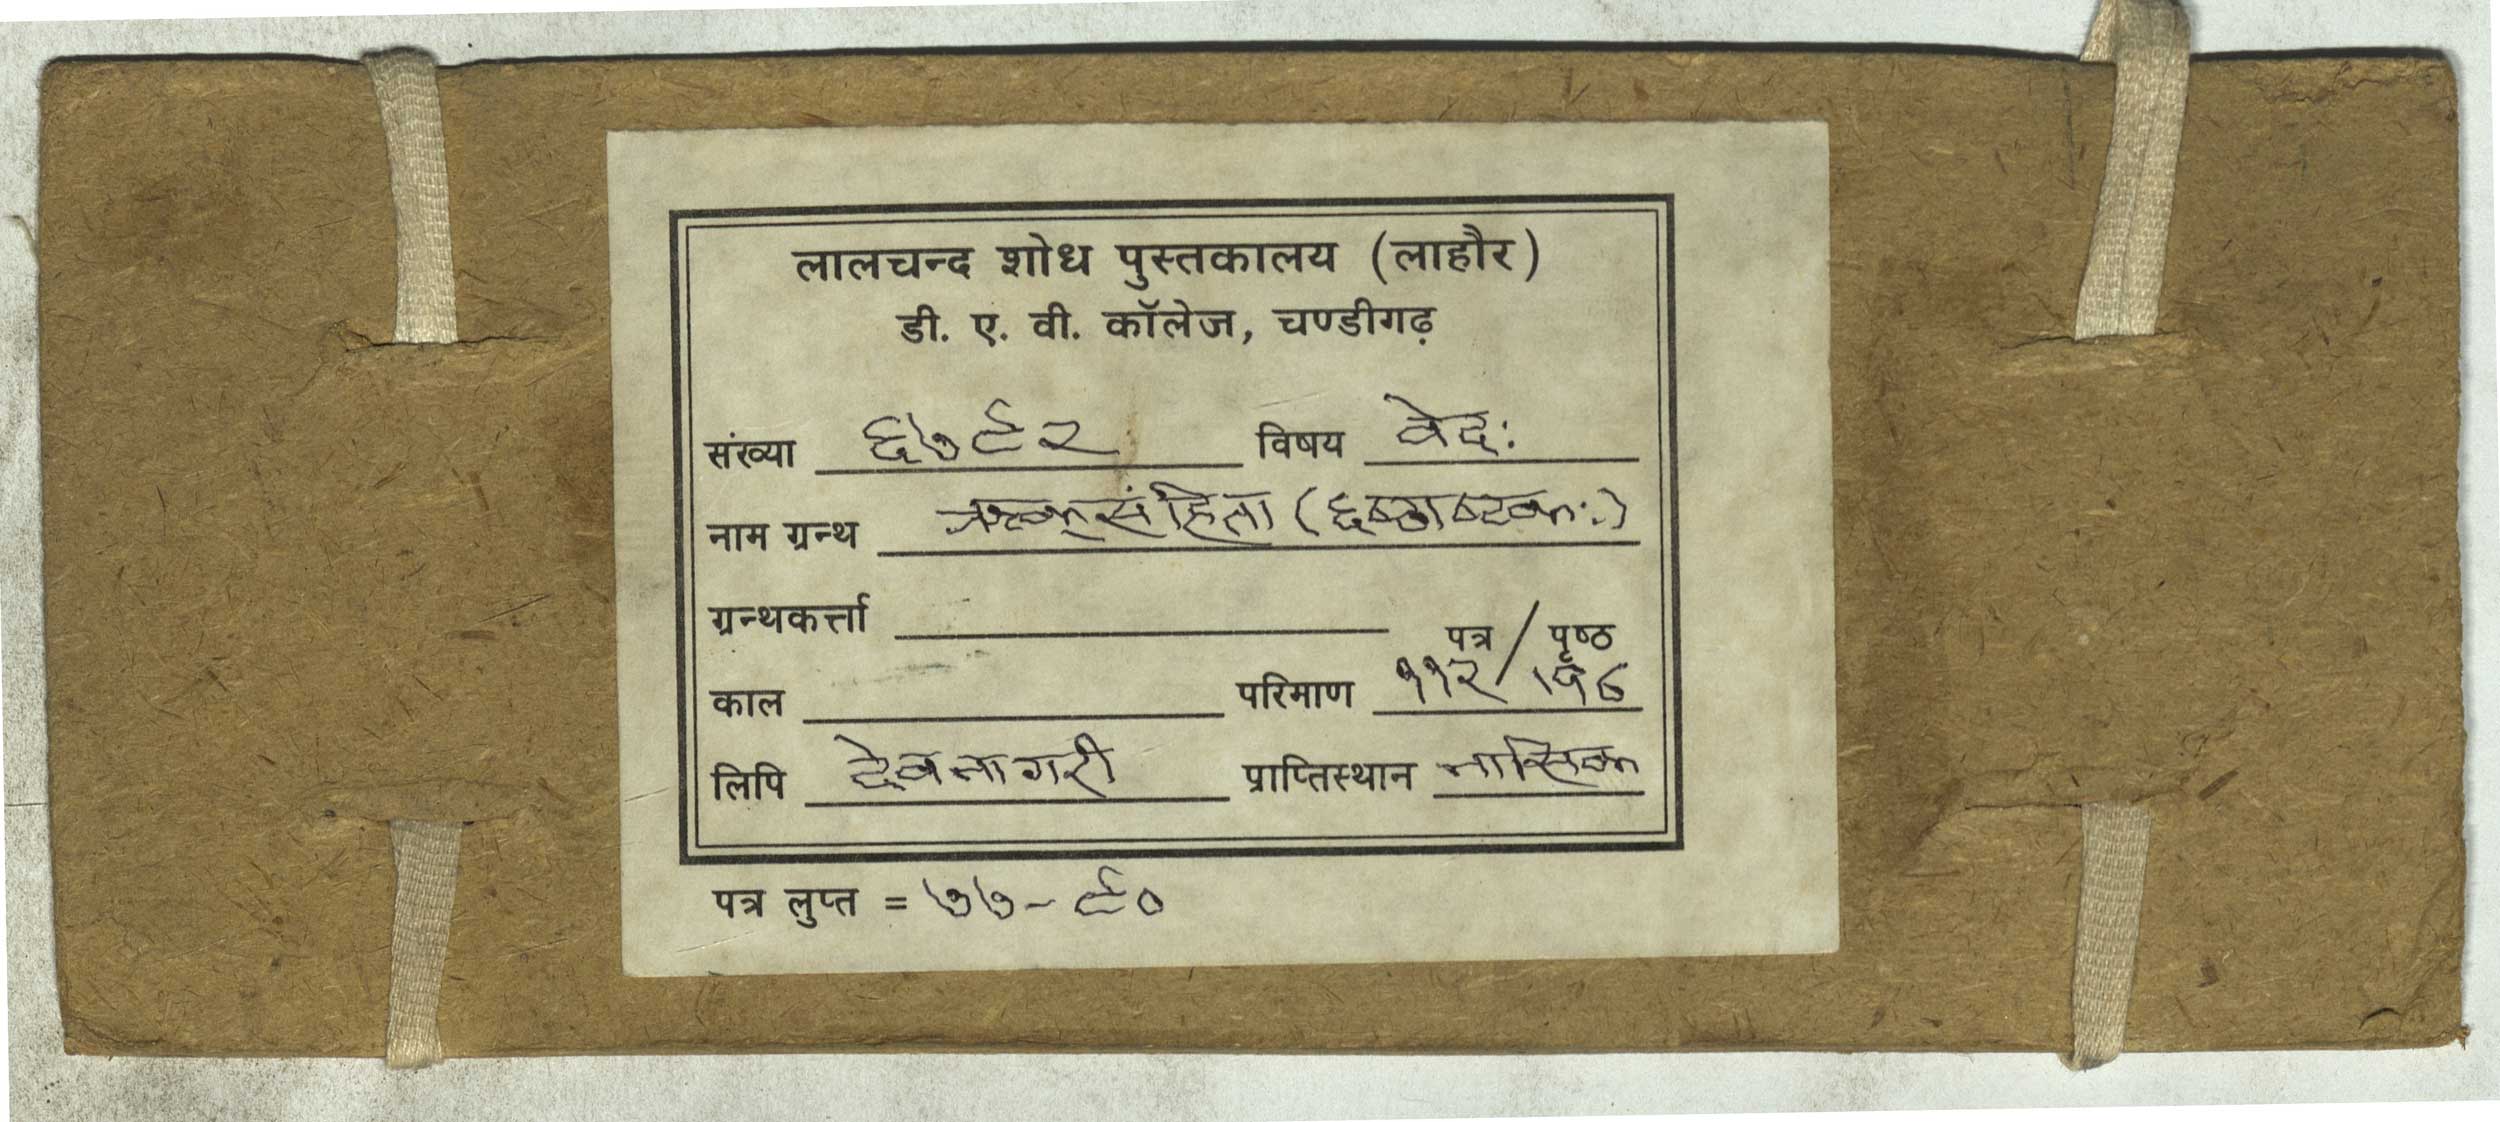 लालचन्द शोध पुस्तकालय (लाहौर)
डी. ए. वी. कॉलेज, चण्डीगढ़
संख्या ६७९२ विषय वेद:
नाम ग्रन्थ ऋक्संहिता (षष्ठाष्टक:)
ग्रन्थकर्त्ता
पत्र / पृष्ठ
काल परिमाण ११२ /
लिपि देवनागरी प्राप्तिस्थान नासिक
पत्र लुप्त = ७७-९०